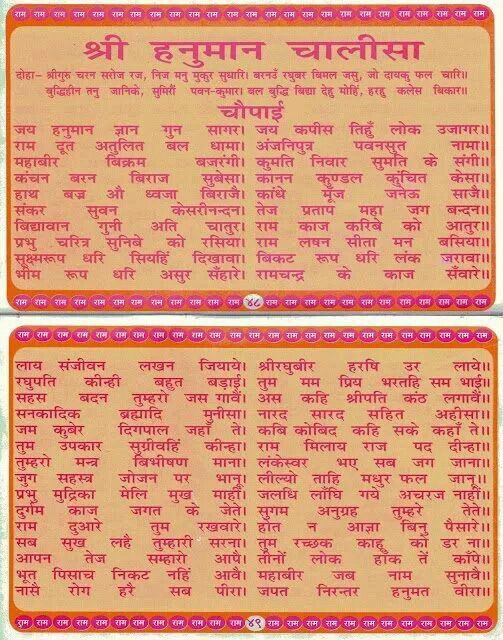 राम राम राम राम राम राम राम राम राम राम राम राम राम राम राम राम राम राम राम
श्री हनुमान चालीसा
दोहा– श्रीगुरु चरन सरोज रज, निज मनु मुकुर सुधारि। बरनउँ रघुबर बिमल जसु, जो दायकु फल चारि॥
बुद्धिहीन तनु जानिके, सुमिरौं पवन-कुमार। बल बुद्धि बिद्या देहु मोहिं, हरहु कलेस बिकार॥
चौपाई
जय हनुमान ज्ञान गुन सागर। जय कपीस तिहुँ लोक उजागर॥
राम दूत अतुलित बल धामा। अंजनिपुत्र पवनसुत नामा॥
महाबीर बिक्रम बजरंगी। कुमति निवार सुमति के संगी॥
कंचन बरन बिराज सुबेसा। कानन कुण्डल कुंचित केसा॥
हाथ बज्र औ ध्वजा बिराजै। काँधे मूँज जनेऊ साजै॥
संकर सुवन केसरीनन्दन। तेज प्रताप महा जग बन्दन॥
बिद्यावान गुनी अति चातुर। राम काज करिबे को आतुर॥
प्रभु चरित्र सुनिबे को रसिया। राम लषन सीता मन बसिया॥
सूक्ष्मरूप धरि सियहिं दिखावा। बिकट रूप धरि लंक जरावा॥
भीम रूप धरि असुर सँहारे। रामचन्द्र के काज सँवारे॥
४८
लाय संजीवन लखन जियाये। श्रीरघुबीर हरषि उर लाये॥
रघुपति कीन्ही बहुत बड़ाई। तुम मम प्रिय भरतहि सम भाई॥
सहस बदन तुम्हरो जस गावैं। अस कहि श्रीपति कंठ लगावैं॥
सनकादिक ब्रह्मादि मुनीसा। नारद सारद सहित अहीसा॥
जम कुबेर दिगपाल जहाँ ते। कबि कोबिद कहि सके कहाँ ते॥
तुम उपकार सुग्रीवहिं कीन्हा। राम मिलाय राज पद दीन्हा॥
तुम्हरो मन्त्र बिभीषण माना। लंकेस्वर भए सब जग जाना॥
जुग सहस्त्र जोजन पर भानू। लील्यो ताहि मधुर फल जानू॥
प्रभु मुद्रिका मेलि मुख माहीं। जलधि लाँघि गये अचरज नाहीं॥
दुर्गम काज जगत के जेते। सुगम अनुग्रह तुम्हरे तेते॥
राम दुआरे तुम रखवारे। होत न आज्ञा बिनु पैसारे॥
सब सुख लहै तुम्हारी सरना। तुम रच्छक काहू को डर ना॥
आपन तेज सम्हारो आपै। तीनों लोक हाँक तें काँपे॥
भूत पिसाच निकट नहिं आवै। महाबीर जब नाम सुनावै॥
नासै रोग हरै सब पीरा। जपत निरन्तर हनुमत वीरा॥
४९